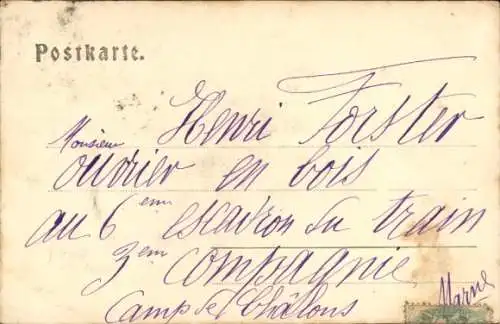 Postkarte.
Monsieur Henri Forster
ouvrier en bois
au 6 eme escadron du train
3em compagnie
Camp de Châlons
Marne